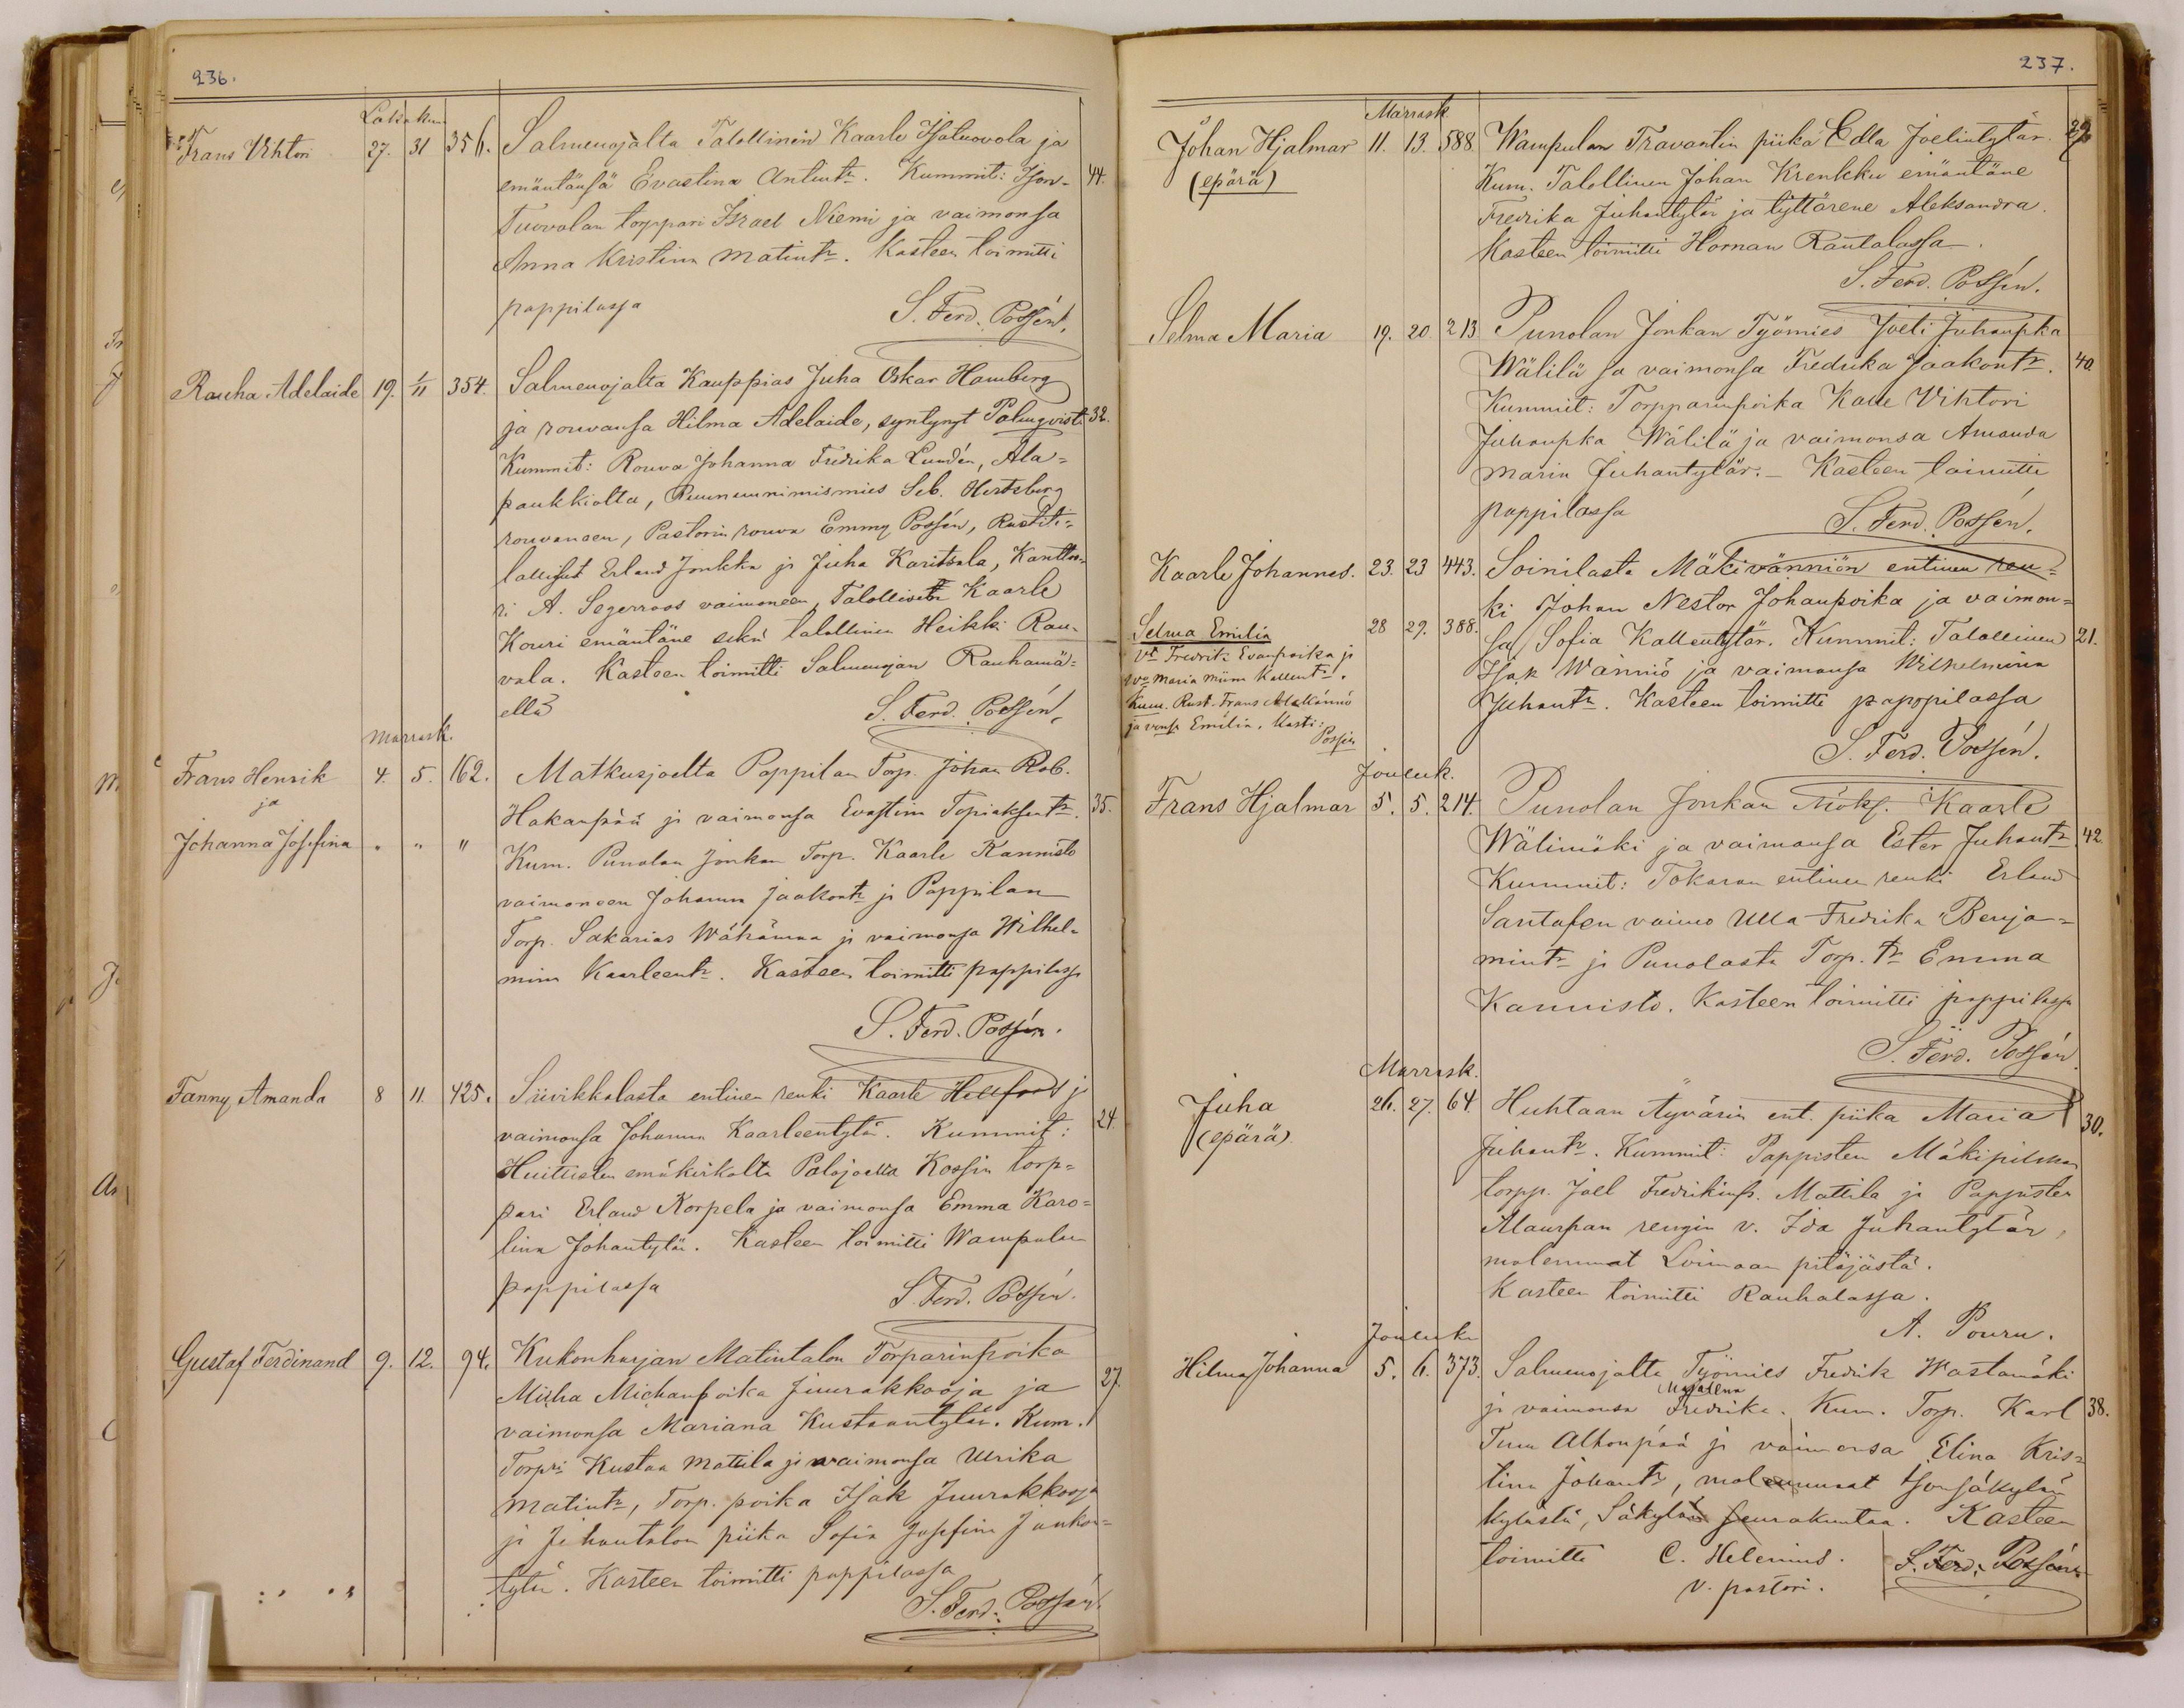 236.
Lokakuu
Frans Vihtori 27. 31 356. Salmenojalta Talollinen Kaarle Isotuovola ja
emäntänsä Evastina Antintr. Kummit: Ison- 44.
Tuovolan torppari Israel Niemi ja vaimonsa
Anna Kristina Matintr. Kasteen toimitti
pappilassa S. Ferd. Possén.
Rauha Adelaide 19. 1/11 354. Salmenojalta Kauppias Juha Oskar Hamberg
ja rouvansa Hilma Adelaide, syntynyt Palmqvist. 32.
Kummit: Rouva Johanna Fredrika Lundén, Ala-
paukkiolta, Kruununnimismies Seb. Hertzberg
rouvaneen, Pastorin rouva Emmy Possén, Rustiti-
lalliset Erland Jonkka ja Juha Karitsala, Kantto-
ri A. Segerroos vaimoneen, Talolliset Kaarle
Kouri emäntäne sekä talollinen Heikki Rau-
vala. Kasteen toimitti Salmenojan Rauhamä-
ellä S. Ferd. Possén.
Marrask.
Frans Henrik 4. 5. 162. Matkusjoelta Pappilan Torp. Johan Rob.
ja
Hakanpää ja vaimonsa Evastina Topiaksentr. 35.
Johanna Josefina " " " Kum. Punolan Jonkan Torp. Kaarle Kannisto
vaimoneen Johanna Jaakontr ja Pappilan
Torp. Sakarias Wähämaa ja vaimonsa Wilhel-
mina Kaarleentr. Kasteen toimitti pappilassa
S. Ferd. Possén.
Fanny Amanda 8 11. 425. Siivikkalasta entinen renki Kaarle Hellfors ja
vaimonsa Johanna Kaarleentytär. Kummit: 24.
Huittisten emäkirkolta Palojoelta Kossin torp-
pari Erland Korpela ja vaimonsa Emma Karo-
lina Johantytär. Kasteen toimitti Wampulan
pappilassa S. Ferd. Possén.
Gustaf Ferdinand 9. 12. 94. Kukonharjan Matintalon Torparinpoika
Miiha Michanpoika Juurakkooja ja 27.
vaimonsa Mariana Kustaantytär. Kum.
Torpri Kustaa Mattila ja vaimonsa Ulrika
Matintr, Torp. poika Isak Juurakkooja
ja Juhantalon piika Sofia Josefina Jaakon-
tytär. Kasteen toimitti pappilassa
S. Ferd. Possén.
237.
Marrask
Johan Hjalmar 11. 13. 588. Wampulan Travantin piika Edla Joelintytär. 29.
(epärä) Kum. Talollinen Johan Krenkku emäntäne
Fredrika Juhantytär ja tyttärene Aleksandra.
Kasteen toimitti Hornan Rantalassa.
S. Ferd. Possén.
Selma Maria 19. 20. 213 Punolan Jonkan Työmies Joeli Juhanpka
Wälilä ja vaimonsa Fredrika Jaakontr. 40.
Kummit: Torpparinpoika Kalle Vihtori
Juhanpka Wälilä ja vaimonsa Amanda
Maria Juhantytär. – Kasteen toimitti
pappilassa S. Ferd. Possén.
Kaarle Johannes. 23. 23 443. Soinilasta Mäkivänniön entinen ren-
ki Johan Nestor Johanpoika ja vaimon-
Selma Emilia 28 29. 388. sa Sofia Kallentytär. Kummit: Talollinen 21.
Vt Fredrik Evanpoika ja
Isak Wänniö ja vaimonsa Wilhelmina
vvo Maria Miina Kallentr.
Juhantr. Kasteen toimitti pappilassa
Kum. Rust. Frans Alakännö
ja vansa Emilia. Kasti:
Possén
S. Ferd. Possén.
Jouluk.
Frans Hjalmar 5. 5. 214. Punolan Jonkan Mäks. Kaarle
Wälimäki ja vaimonsa Ester Juhantr. 42.
Kummit: Tokaran entinen renki Erland
Santasen vaimo Ulla Fredrika Benja-
mintr ja Punolasta Torp. tr Emma
Kannisto. Kasteen toimitti pappilassa
S. Ferd. Possén
Marrask.
Juha 26. 27. 64. Huhtaan Äyvärin ent. piika Maria 30.
(epärä). Juhantr. Kummit: Pappisten Mäkipilskan
torpp. Joel Fredrikinp. Mattila ja Pappisten
Maunpan rengin v. Ida Juhantytär,
molemmat Loimaan pitäjästä.
Kasteen toimitti Rauhalassa.
A. Pouru.
Jouluk
Hilma Johanna 5. 6. 373. Salmenojalta Työmies Fredrik Wastamäki
Magdalena
ja vaimonsa Fredrika. Kum. Torp. Karl 38.
Tuu Alhonpää ja vaimonsa Elina Kris-
tina Johantr, molemmat Isonsäkylän
kylästä, Säkylän seurakuntaa. Kasteen
toimitti C. Helenius. S. Ferd. Possén
v. pastori.